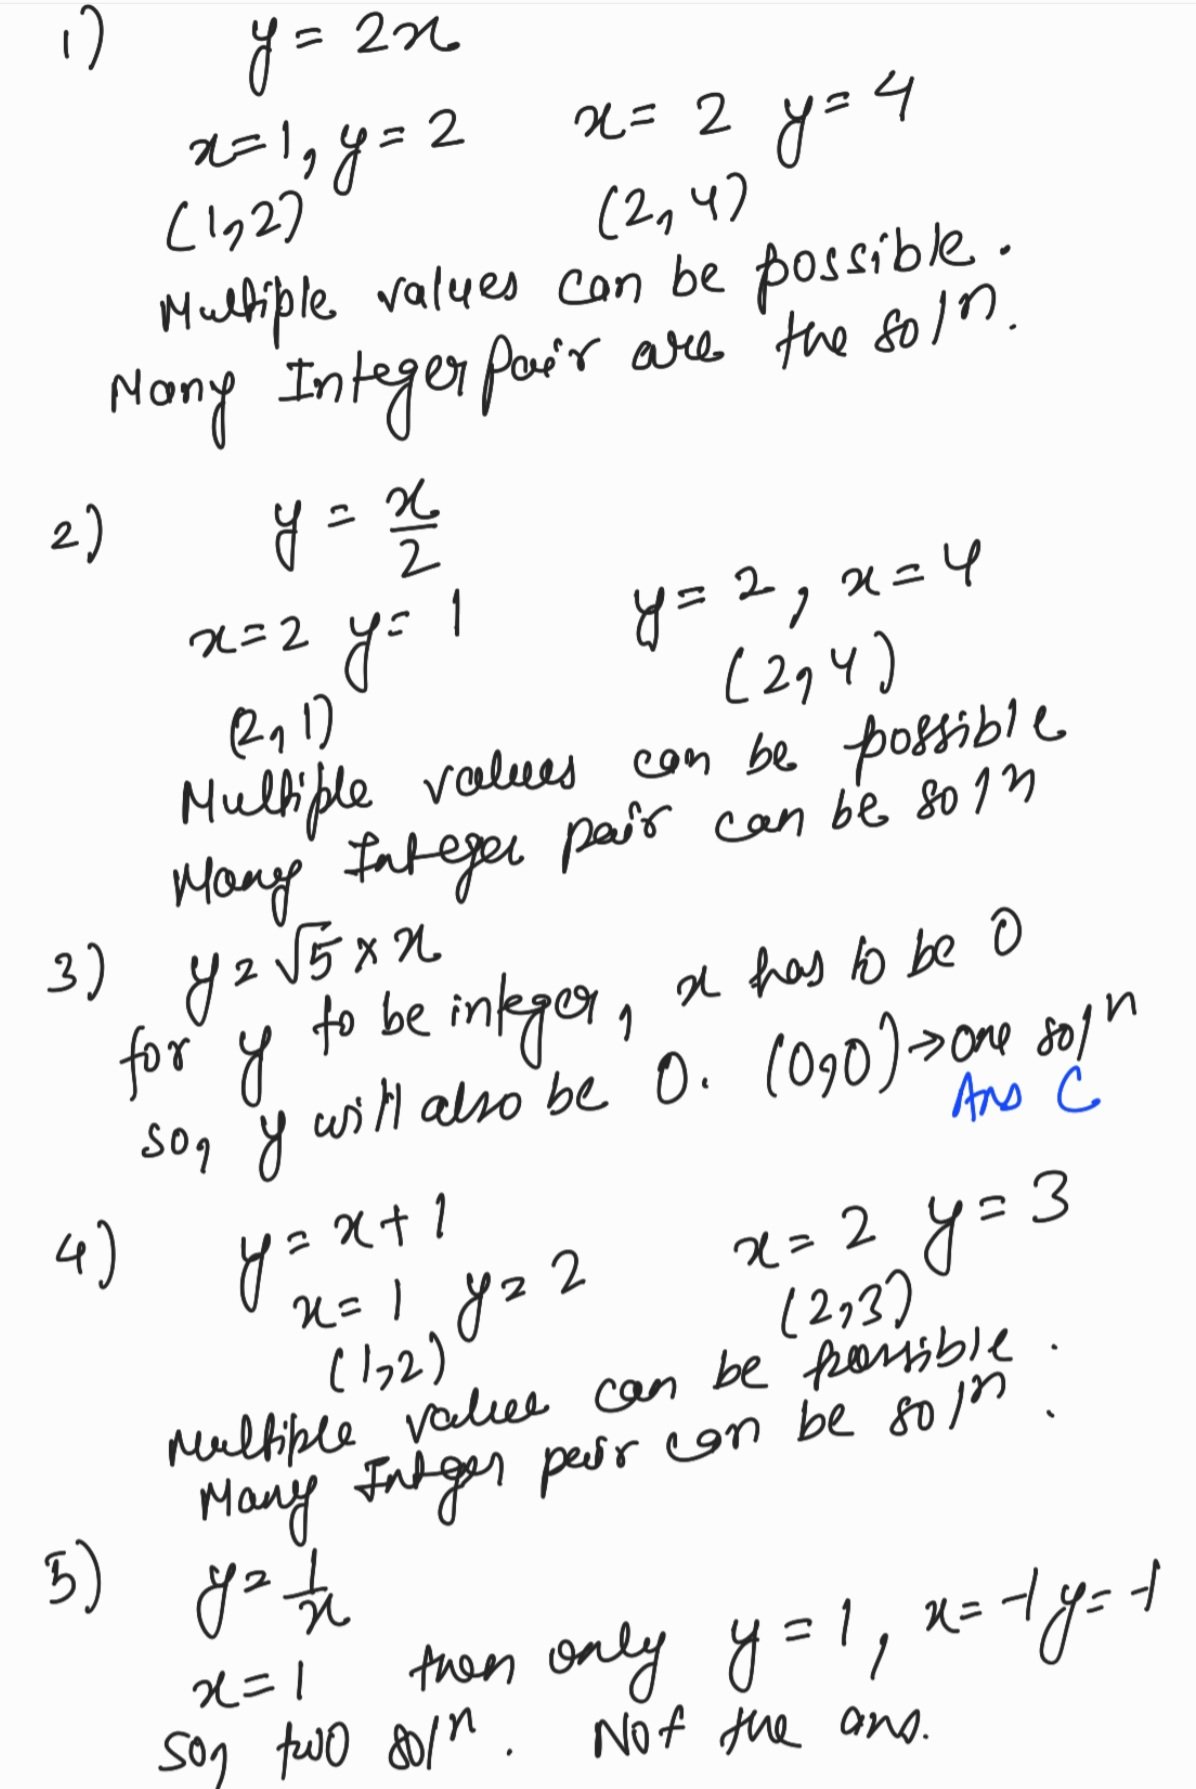 1) y = 2x
x=1, y=2 x=2 y=4
(1,2) (2,4)
Multiple values can be possible.
Many Integer pair are the solⁿ.
2) y = x/2
x=2 y=1 y=2, x=4
(2,1) (2,4)
Multiple values can be possible
Many Integer pair can be solⁿ
3) y=√5×x
for y to be integer, x has to be 0
so, y will also be 0. (0,0)→one solⁿ
Ans C
4) y=x+1
x=1 y=2 x=2 y=3
(1,2) (2,3)
Multiple value can be possible.
Many Integer pair can be solⁿ.
5) y=1/x
x=1 then only y=1, x=-1 y=-1
So, two solⁿ. Not the ans.